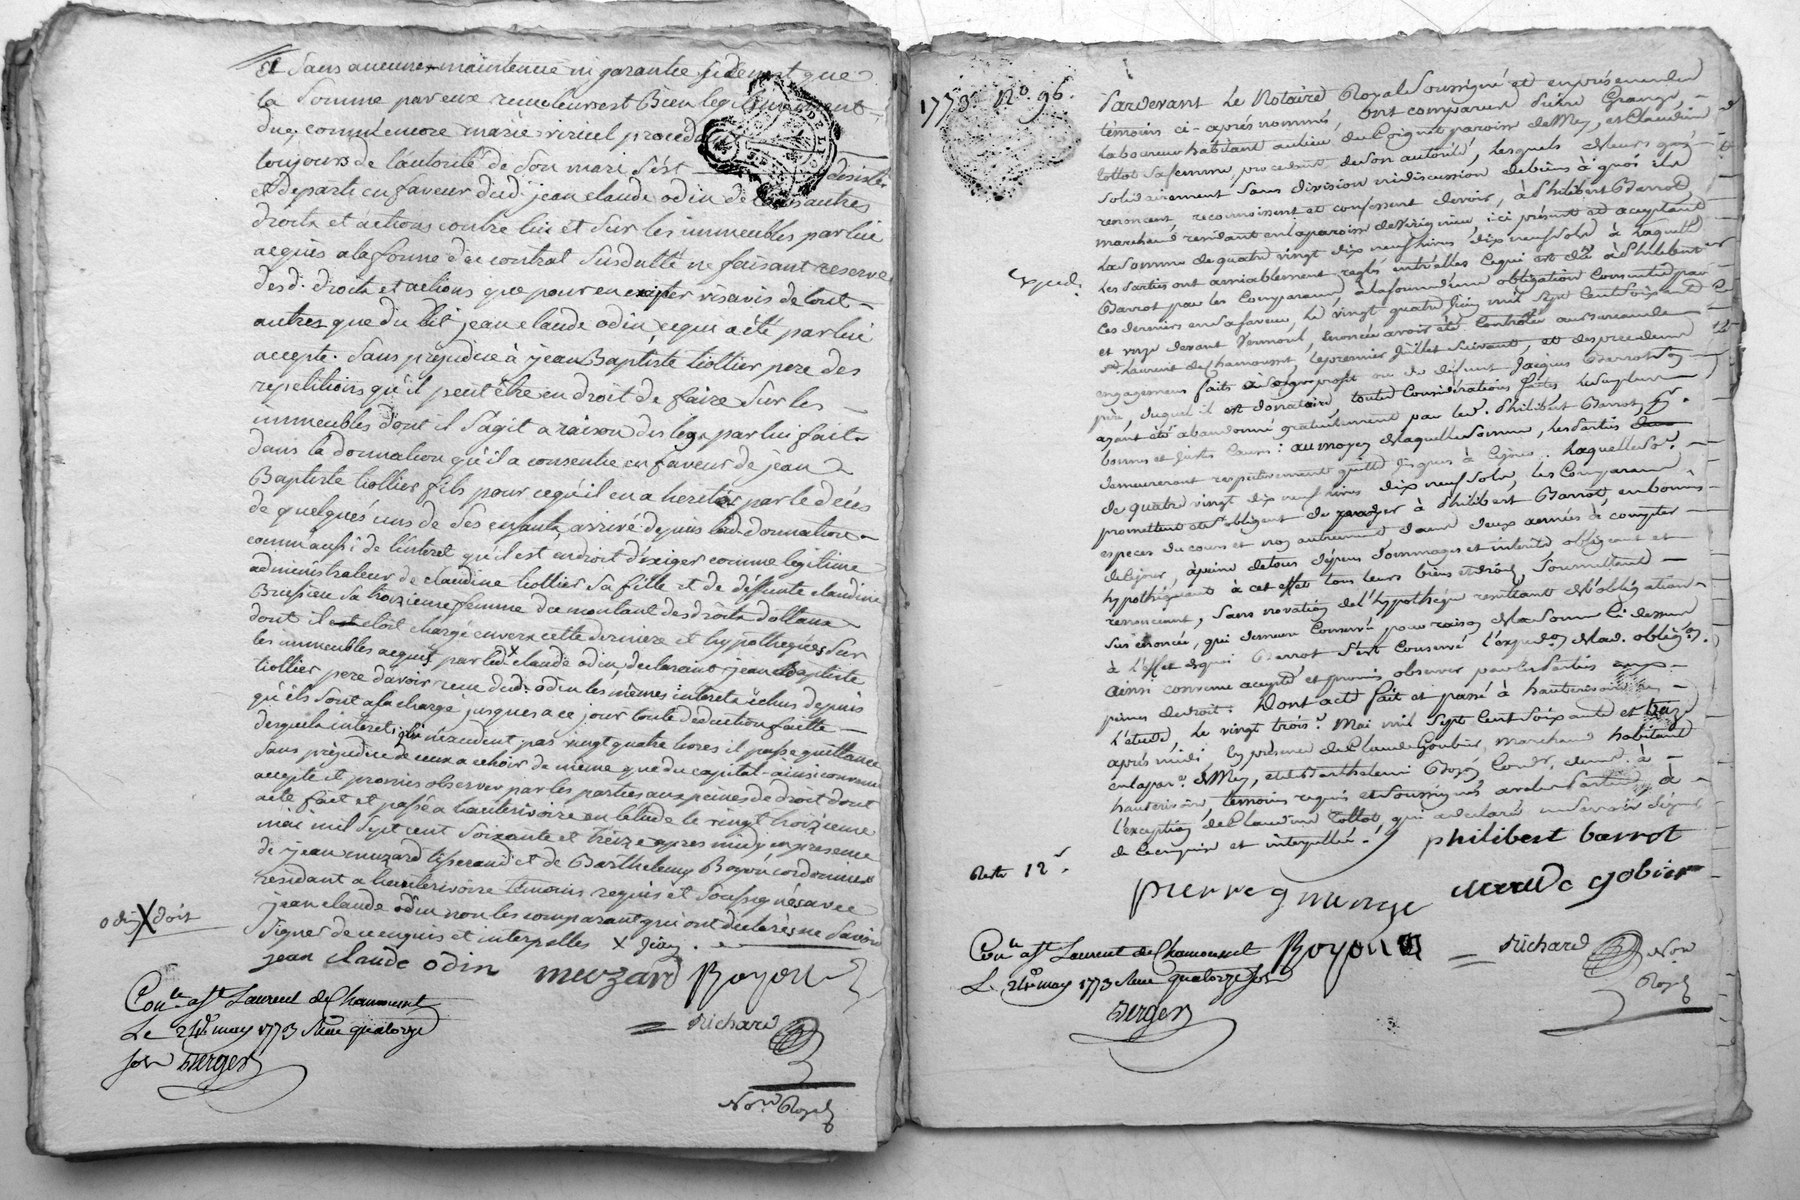 Et Sans aucune maintenüe ni garantie Sidement que
la Somme par eux reçue leur est Bien legitimement
due, comme encore marie viruel procedant
toujours de l'autorité de Son mari S'est desistée
et departie en faveur dud. jean claude odin de tous autres
droits et actions contre lui et Sur les immeubles par lui
acquis a la forme du contrat Susdatté ne faisant reserve
desd. droits et actions que pour en exciper visavis de tout
autres que du dit jean claude odin ce qui a été par lui
accepté. Sans prejudice à jean Baptiste tiollier pere des
repetitions qu'il peut être en droit de faire Sur les
immeubles dont il S'agit a raison des legs par lui fait
dans la donnation qu'il a consentie en faveur de jean
Baptiste tiollier fils pour ce qu'il en a herité par le décés
de quelques uns de Ses enfants arrivé depuis lad. donnation
comm'aussi de l'interet qu'il est en droit d'exiger comme legitime
administrateur de claudine tiollier Sa fille et de deffunte claudine
Sa troizieme femme du montant des droits dottaux
dont il etoit chargé envers cette derniere et hypothequés Sur
les immeubles acquis par led. x claude odin, declarant jean Baptiste
tiollier pere d'avoir reçu dud. odin les mêmes interets échus depuis
qu'ils Sont a Sa charge jusques a ce jour toute deduction faitte
desquels interets qui n'excedent pas vingt quatre livres il passe quittance
Sans prejudice de ceux a echoir de même que du capital ainsi convenu
accepté et promis observer par les parties aux peines de droit dont
acte fait et passé a hauterivoire en l'etude le vingt troizieme
mai mil Sept cent Soixante et treize apres midy en presence
de jean muzard tisserand et de Barthelemy Boyon cordonnier
residant a hauterivoire temoins requis et Soussignés avec
jean claude odin non les comparants qui ont declaré ne Savoir
Signer de ce enquis et interpellés x jean.
odin X doit
jean claude odin muzard Boyon
Con.le a St Laurent de Chamousset
Le 24e may 1773 Reçu quatorze
Sols Berger
Richard
No.re Royal
1773. No. 96.
Pardevant Le Notaire Royal Soussigné et en présence des
témoins ci-après nommés, ont comparu Pierre Grange
Laboureur habitant au lieu du Poignet paroisse de Mey, et Claudine
tottot Sa femme, procedant de Son autorité, lesquels de leurs gré
Solidairement Sans division ni discussion de biens à quoi ils
renoncent reconnoissent et confessent devoir, à Philibert Barrot
marchand residant en la paroisse de Virigneu, ici présent et acceptant
La Somme de quatre vingt dix neuf livres dix neuf Sols à laquelle
Les Parties ont amiablement reglé entr'elles ce qui est dû à Philibert
Expéd.
Barrot par les Comparants, à la forme d'une obligation Consentie par
Ces derniers en Sa faveur, le vingt quatre juin mil Sept Cent Soixante
et onze devant Vermorel, énoncée avoir été Controllée au Bureau de
St. Laurent de Chamousset, le premier Juillet Suivant, et des precedents
engagemens faits à Son profit ou de defunt Jacques Barrot Son
père, duquel il est donataire toutes Considérations faites le Surplus
ayant été abandonné gratuitement par led. Philibert Barrot p.r
bonnes et justes causes : au moyen de laquelle Somme, les Parties
demeureront respectivement quittes jusques à ce jour. laquelle So.e
de quatre vingt dix neuf livres dix neuf Sols, les Comparants
promettent et S'obligent de payer à Philibert Barrot, en bonnes
especes du cours et non autrement dans deux années à compter
de ce jour, à peine de tous dépens dommages et intérêts obligeant et
hypothéquant à cet effet tous leurs biens et droits, Soumettant
renonçant, Sans novation de l'hypothéque resultant de l'obligation
Sus énoncée, qui demeure Conservée pour raison de la Somme Ci dessus
à l'effet de quoi Barrot S'est Conservé l'expedon de lad. obligon.
ainsi convenu accepté et promis observer par les Parties aux
peines de droit : Dont acte fait et passé à hauterivoire en
l'étude, le vingt trois.e Mai mil Sept Cent Soixante et treize
après midi En présence de Claude Goubier, Marchand habitant
en la par.e de Mey, et de Barthelemi Boyon Cord.r dem.t à
hauterivoire, témoins requis et Soussignés avec les Parties à
l'exception de Claudine tottot qui a declaré ne Savoir Signer
de ce enquise et interpellée.
philibert barrot
Reste 12 s.
pierre grange claude gobier
Con.le a St Laurent de Chamousset Boyon Richard Not.re
Le 24e may 1773 Reçu quatorze Sols Royal
Berger